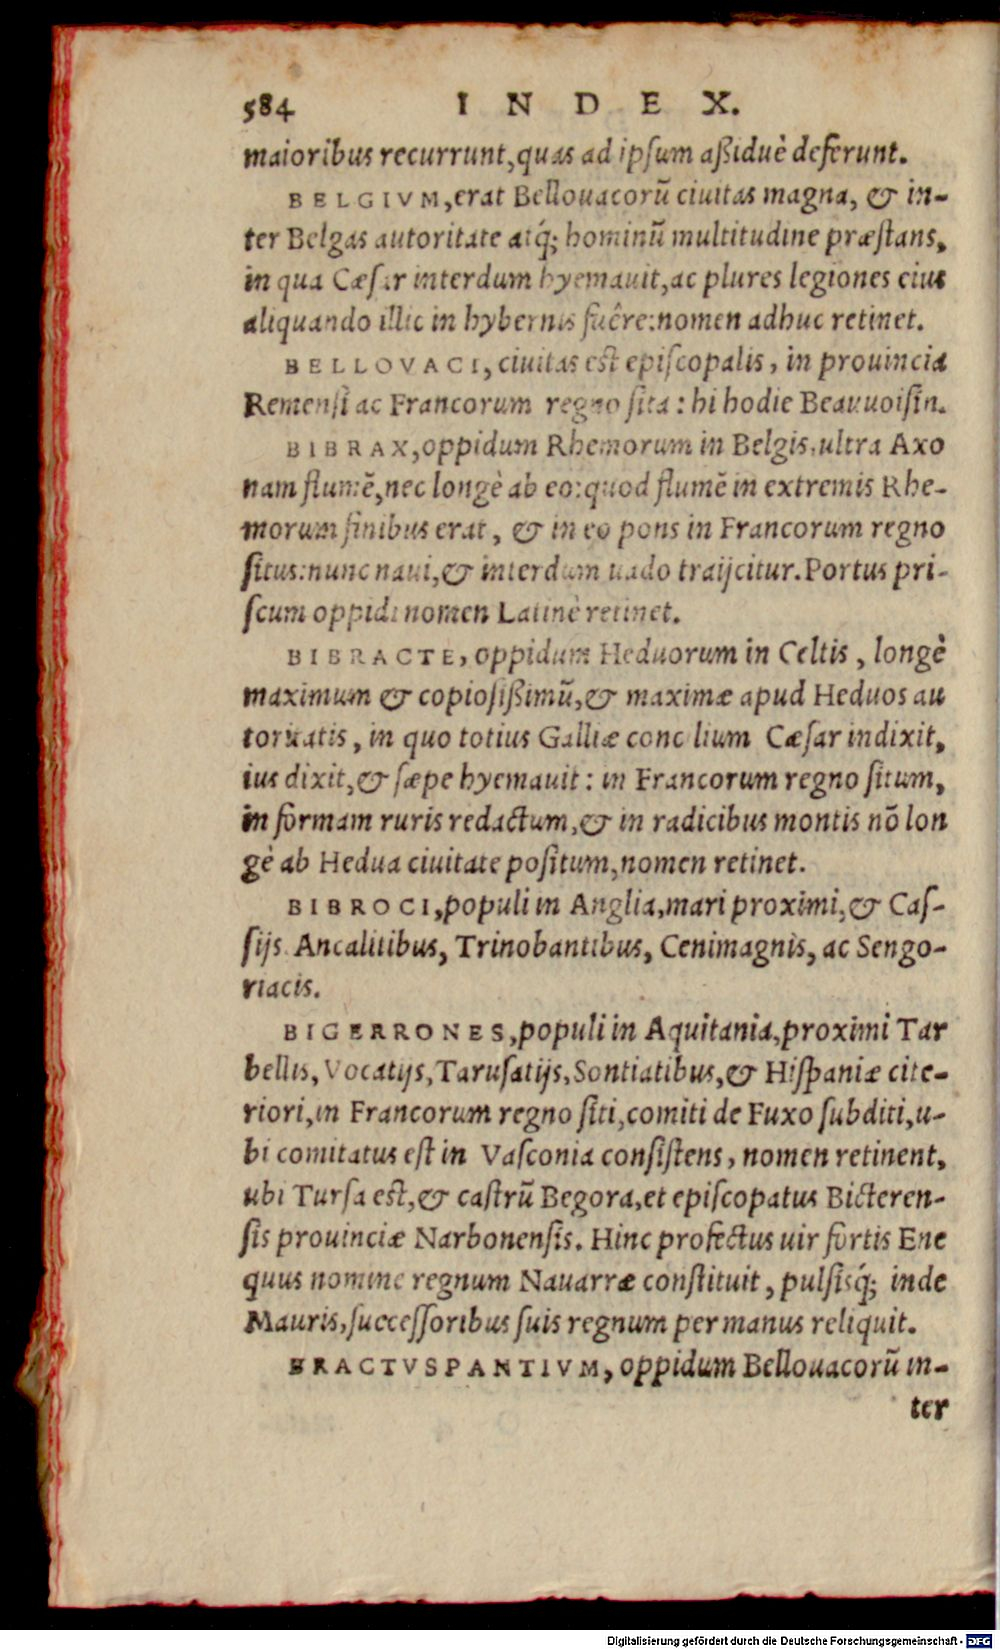 584 INDEX.
maioribus recurrunt, quas ad ipsum aßiduè deferunt.
BELGIVM, erat Bellouacorũ ciuitas magna, & in-
ter Belgas autoritate atq́; hominũ multitudine præstans,
in qua Cæsar interdum hyemauit, ac plures legiones eius
aliquando illic in hybernis fuêre: nomen adhuc retinet.
BELLOVACI, ciuitas est episcopalis, in prouincia
Remensi ac Francorum regno sita: hi hodie Beauuoisin.
BIBRAX, oppidum Rhemorum in Belgis, ultra Axo
nam flumẽ, nec longè ab eo: quod flumẽ in extremis Rhe-
morum finibus erat, & in eo pons in Francorum regno
situs: nunc naui, & interdum uado traijcitur. Portus pri-
scum oppidi nomen Latinè retinet.
BIBRACTE, oppidum Heduorum in Celtis, longè
maximum & copiosißimũ, & maximæ apud Heduos au
toritatis, in quo totius Galliæ concilium Cæsar indixit,
ius dixit, & sæpe hyemauit: in Francorum regno situm,
in formam ruris redactum, & in radicibus montis nõ lon
gè ab Hedua ciuitate positum, nomen retinet.
BIBROCI, populi in Anglia, mari proximi, & Cas-
sijs Ancalitibus, Trinobantibus, Cenimagnis, ac Sengo-
riacis.
BIGERRONES, populi in Aquitania, proximi Tar
bellis, Vocatijs, Tarusatijs, Sontiatibus, & Hispaniæ cite-
riori, in Francorum regno siti, comiti de Fuxo subditi, u-
bi comitatus est in Vasconia consistens, nomen retinent,
ubi Tursa est, & castrũ Begora, et episcopatus Bicteren-
sis prouinciæ Narbonensis. Hinc profectus uir fortis Ene
quus nomine regnum Nauarræ constituit, pulsisq́; inde
Mauris, successoribus suis regnum per manus reliquit.
BRACTVSPANTIVM, oppidum Bellouacorũ in-
ter
Digitalisierung gefördert durch die Deutsche Forschungsgemeinschaft - DFG